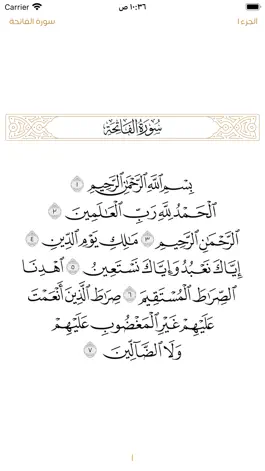 Carrier ١٠:٣٦ ص
الجزء ١ سورة الفاتحة
سُورَةُ الفَاتِحَةِ
بِسْمِ اللَّهِ الرَّحْمَٰنِ الرَّحِيمِ ١
الْحَمْدُ لِلَّهِ رَبِّ الْعَالَمِينَ ٢
الرَّحْمَٰنِ الرَّحِيمِ ٣ مَالِكِ يَوْمِ الدِّينِ ٤
إِيَّاكَ نَعْبُدُ وَإِيَّاكَ نَسْتَعِينُ ٥ اهْدِنَا
الصِّرَاطَ الْمُسْتَقِيمَ ٦ صِرَاطَ الَّذِينَ أَنْعَمْتَ
عَلَيْهِمْ غَيْرِ الْمَغْضُوبِ عَلَيْهِمْ
وَلَا الضَّالِّينَ ٧
١